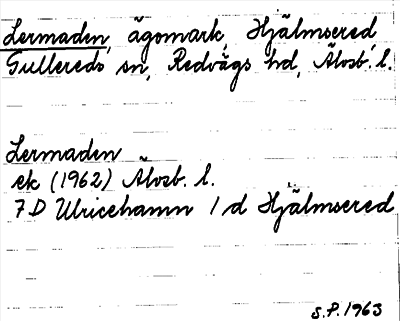 Lermaden, ägomark, Hjälmsered,
Gullereds sn, Redvägs hd, Älvsb. l.
Lermaden
ek (1962) Älvsb. l.
7D Ulricehamn 1d Hjälmsered
S.P. 1963